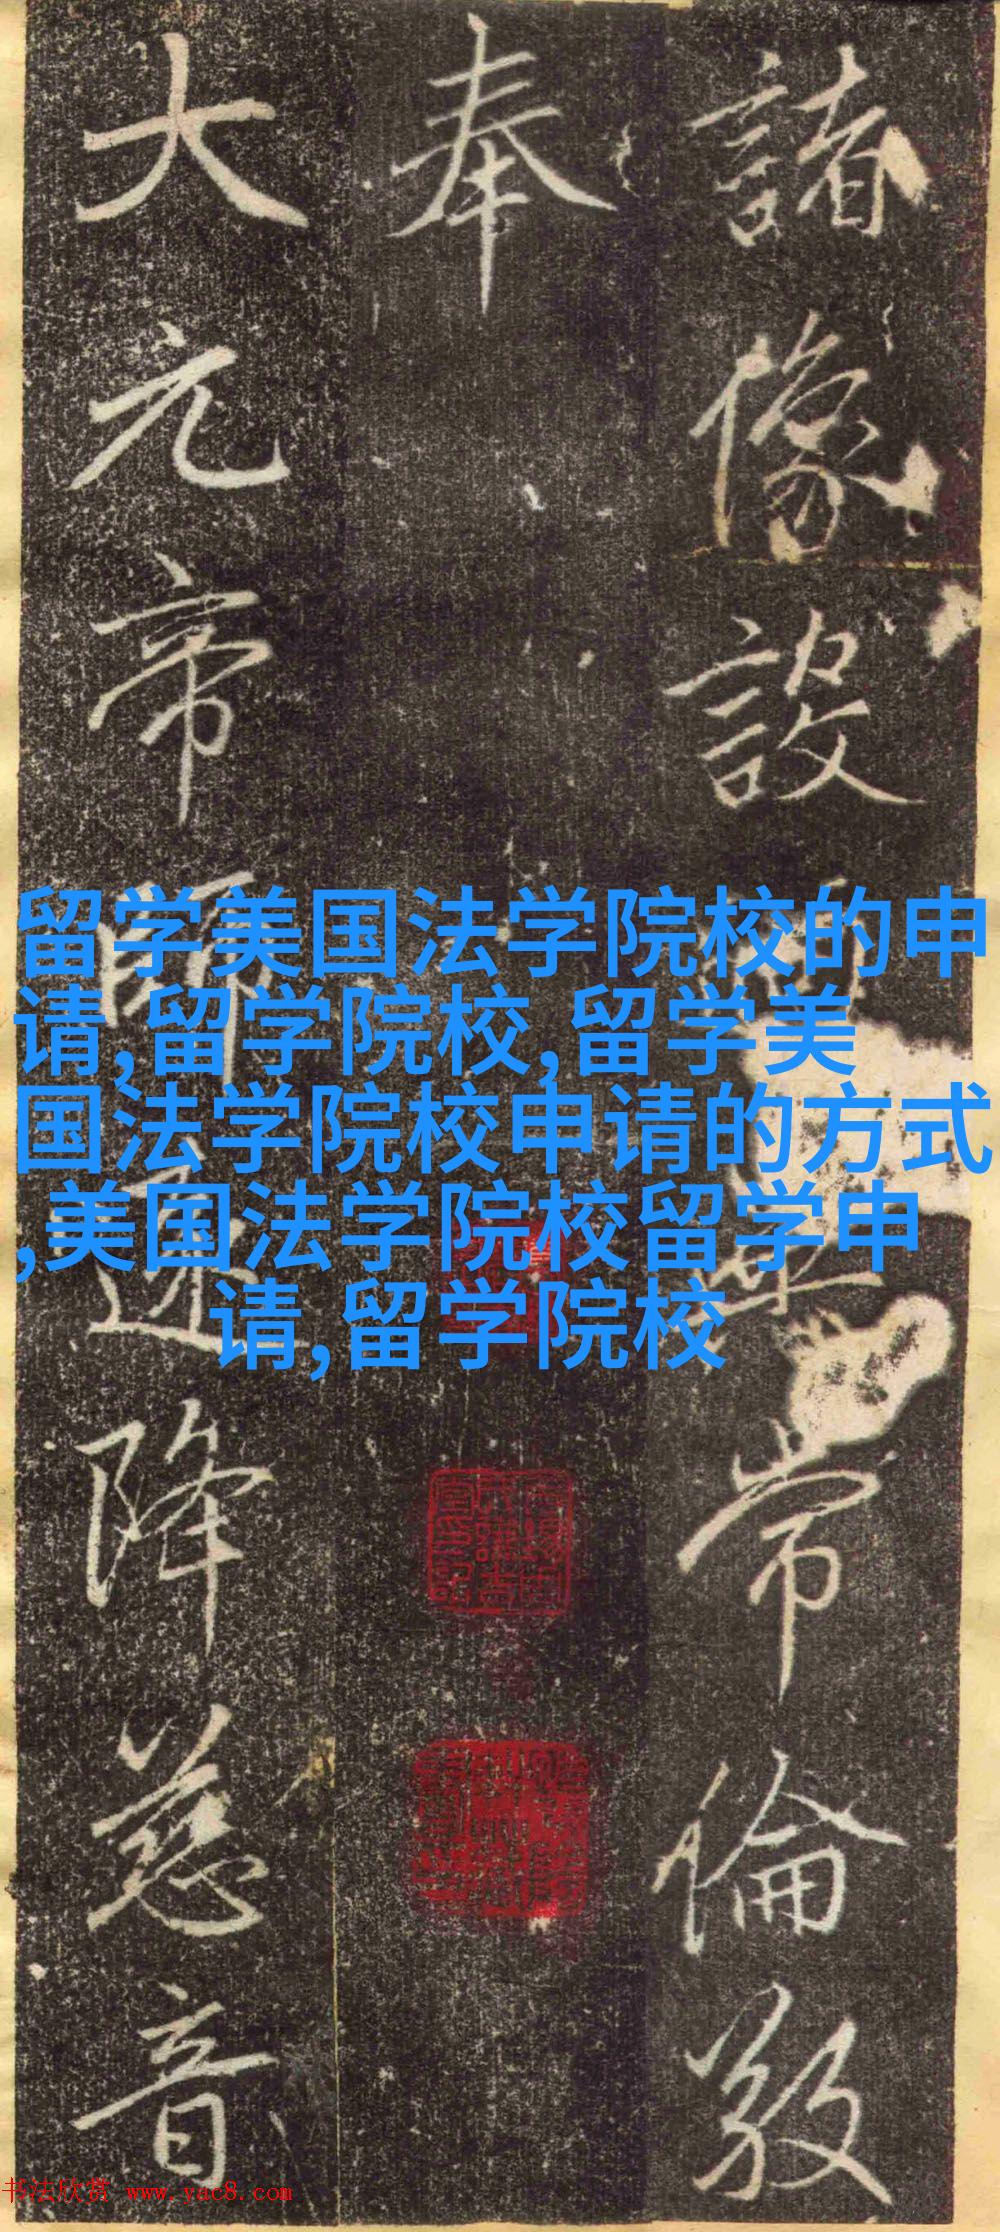 諸像設常倫敎
奉
大元帝師降慈音
留学美国法学院校的申
请,留学院校,留学美
国法学院校申请的方式
,美国法学院校留学申
请,留学院校
书法欣赏 www.yac8.com